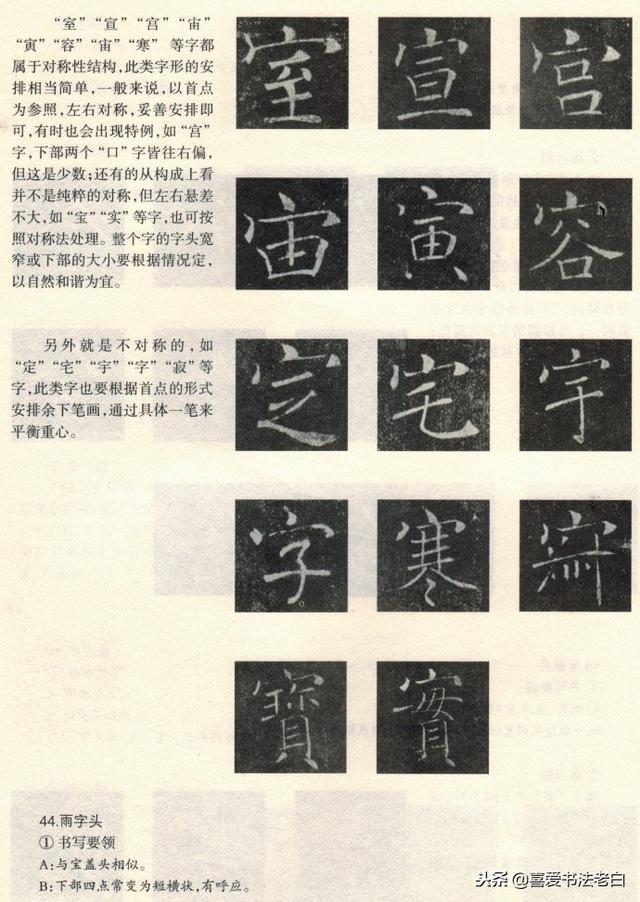 “室”“宣”“宫”“宙”
“寅”“容”“宙”“寒” 等字都
属于对称性结构，此类字形的安
排相当简单，一般来说，以首点
为参照，左右对称，妥善安排即
可，有时也会出现特例，如“宫”
字，下部两个“口”字皆往右偏，
但这是少数；还有的从构成上看
并不是纯粹的对称，但左右悬差
不大，如“宝”“实”等字，也可按
照对称法处理。整个字的字头宽
窄或下部的大小要根据情况定，
以自然和谐为宜。
另外就是不对称的，如
“定”“宅”“宇”“字”“寂”等
字，此类字也要根据首点的形式
安排余下笔画，通过具体一笔来
平衡重心。
室 宣 宫
宙 寅 容
定 宅 宇
字 寒
寶 實
44.雨字头
①书写要领
A：与宝盖头相似。
B：下部四点常变为短横状，有呼应。
头条 @喜爱书法老白